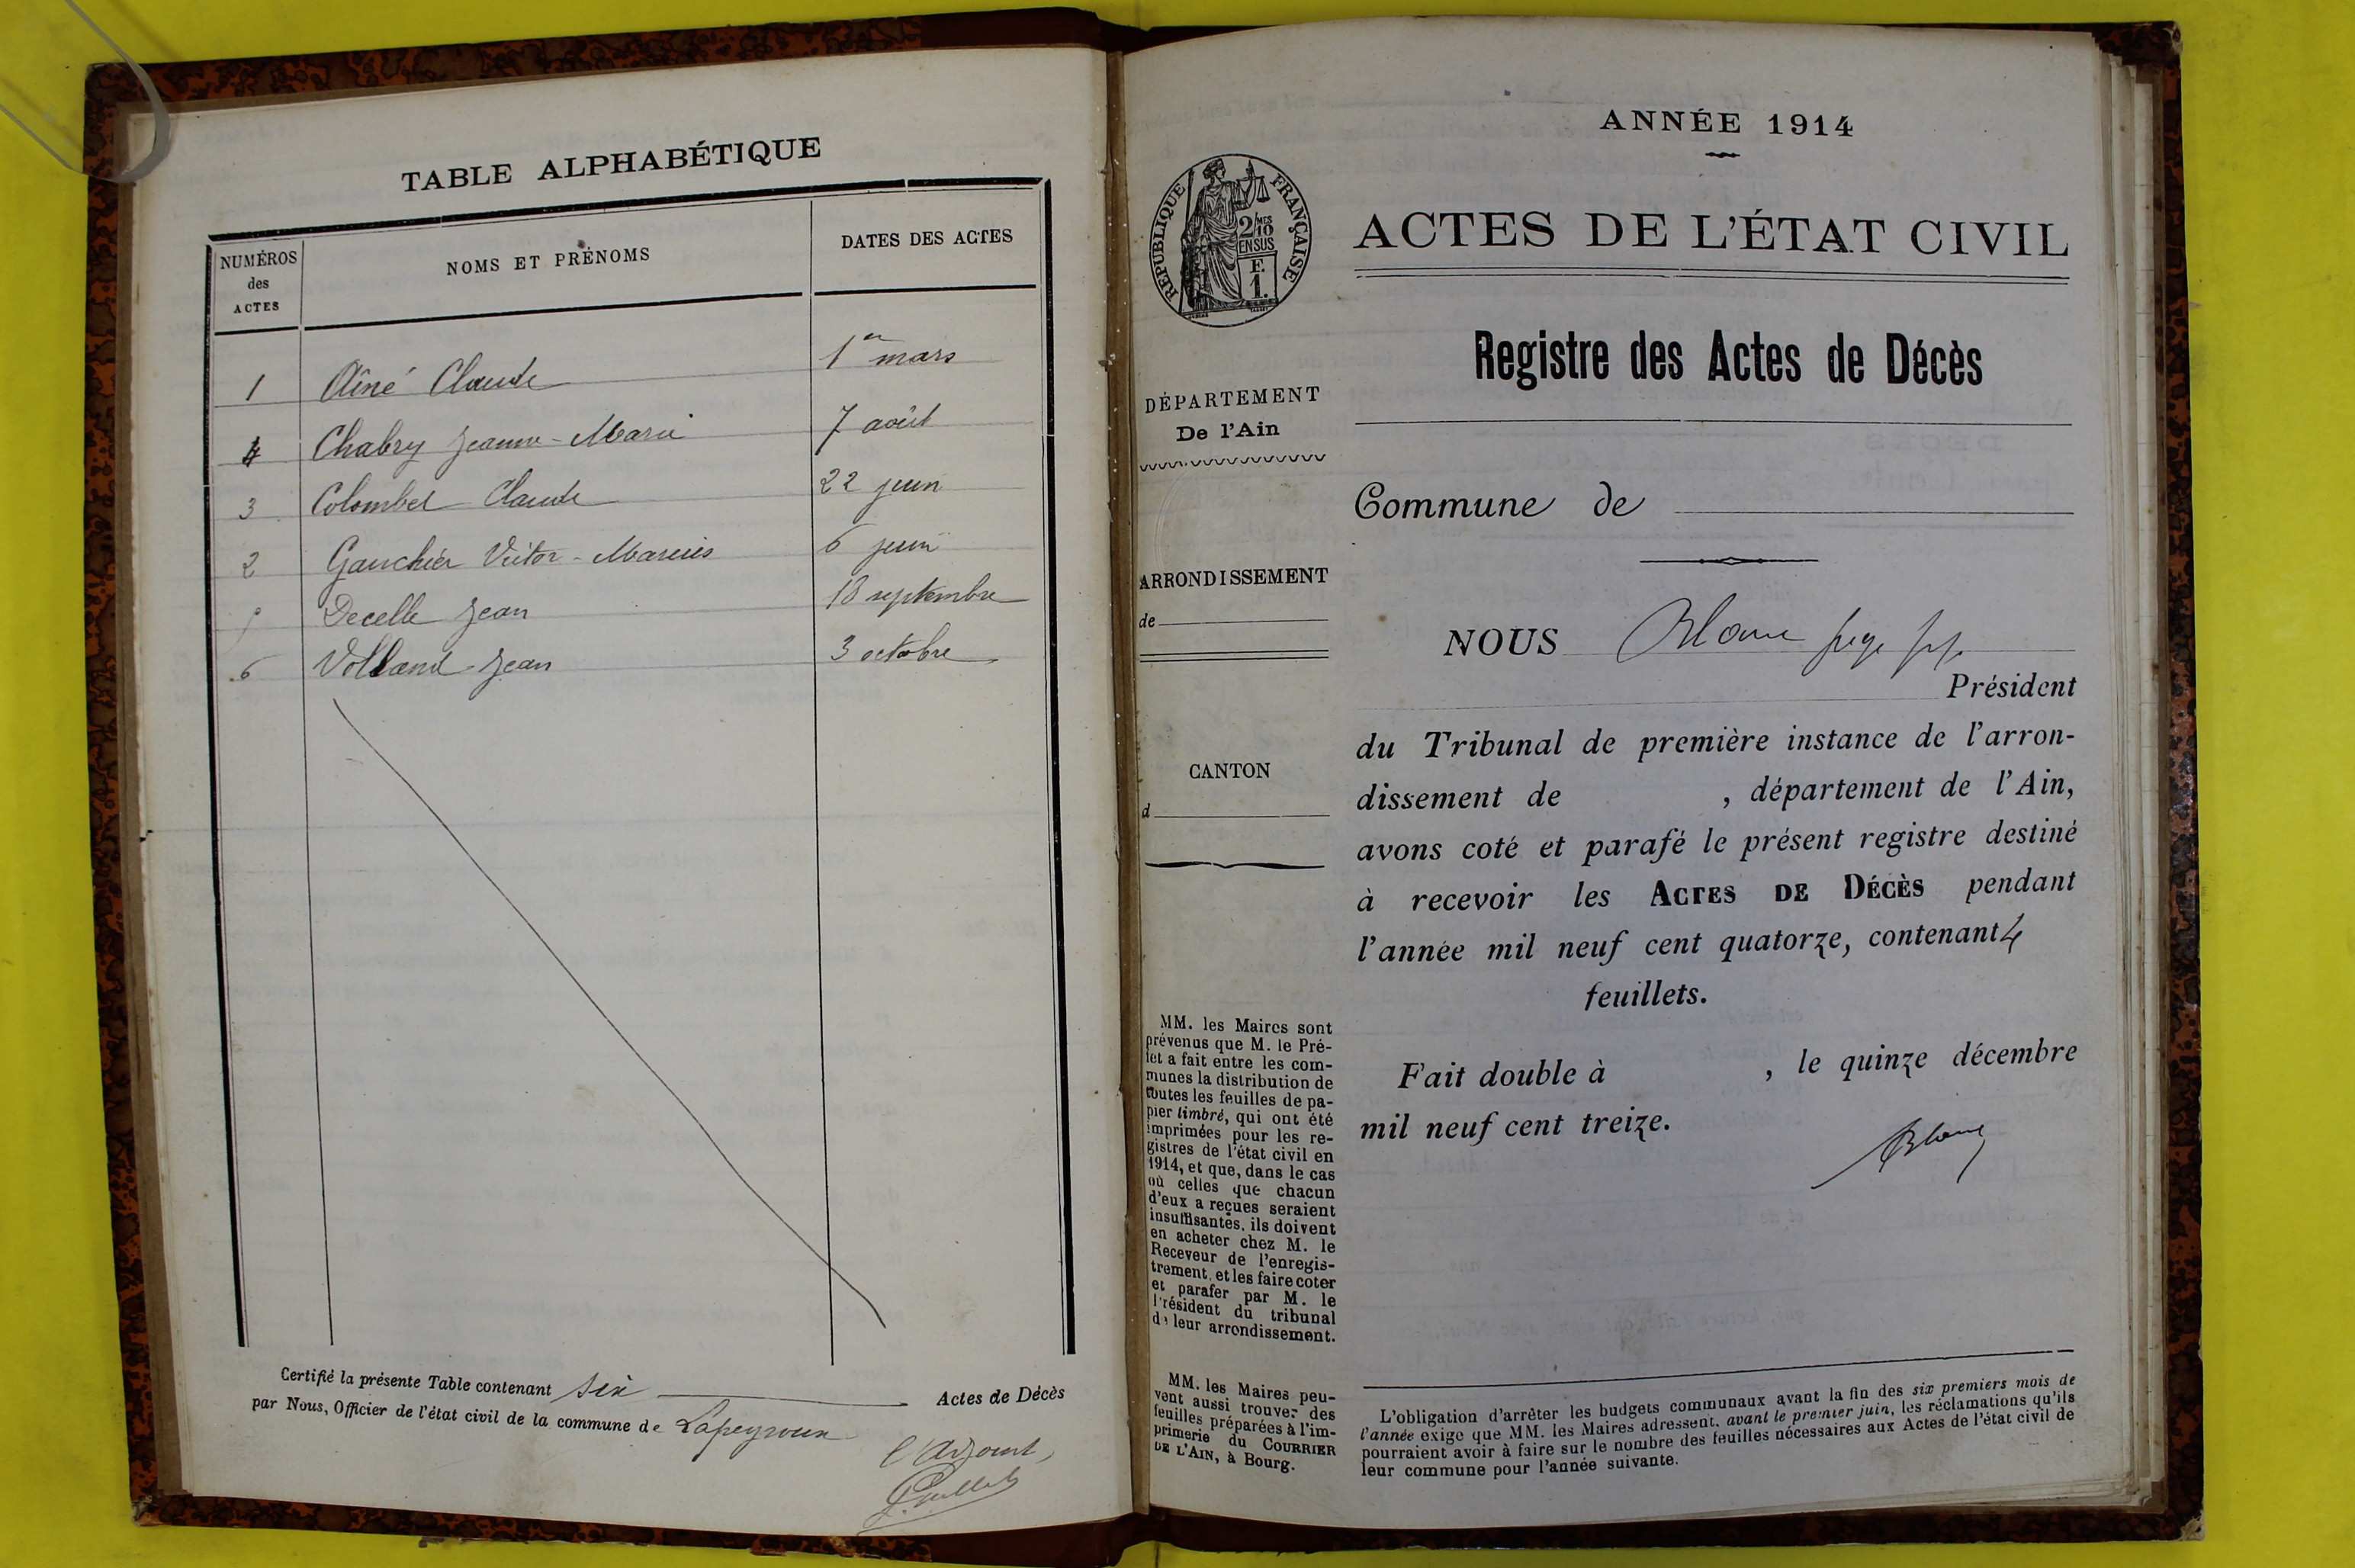 TABLE ALPHABÉTIQUE
NUMÉROS des ACTES
NOMS ET PRÉNOMS
DATES DES ACTES
1 Aîné Claude 1er mars
4 Chabry Jeanne-Marie 7 août
3 Colombet Claude 22 juin
2 Gauchier Victor-Marius 6 juin
5 Decelle Jean 18 septembre
6 Volland Jean 3 octobre
Certifié la présente Table contenant six Actes de Décès
par Nous, Officier de l'état civil de la commune de Lapeyrouse
l'Adjoint,
ANNÉE 1914
RÉPUBLIQUE FRANÇAISE
2/10 MES
EN SUS
F.
1.
ACTES DE L'ÉTAT CIVIL
Registre des Actes de Décès
DÉPARTEMENT
De l'Ain
Commune de
ARRONDISSEMENT
de
NOUS Blanc juge
Président
du Tribunal de première instance de l'arron-
dissement de , département de l'Ain,
avons coté et parafé le présent registre destiné
à recevoir les ACTES DE DÉCÈS pendant
l'année mil neuf cent quatorze, contenant 4
feuillets.
Fait double à , le quinze décembre
mil neuf cent treize.
Blanc
CANTON
d
MM. les Maires sont
prévenus que M. le Pré-
fet a fait entre les com-
munes la distribution de
toutes les feuilles de pa-
pier timbré, qui ont été
imprimées pour les re-
gistres de l'état civil en
1914, et que, dans le cas
où celles que chacun
d'eux a reçues seraient
insuffisantes, ils doivent
en acheter chez M. le
Receveur de l'enregis-
trement, et les faire coter
et parafer par M. le
Président du tribunal
de leur arrondissement.
MM. les Maires peu-
vent aussi trouver des
feuilles préparées à l'im-
primerie du COURRIER
DE L'AIN, à Bourg.
L'obligation d'arrêter les budgets communaux avant la fin des six premiers mois de
l'année exige que MM. les Maires adressent, avant le premier juin, les réclamations qu'ils
pourraient avoir à faire sur le nombre des feuilles nécessaires aux Actes de l'état civil de
leur commune pour l'année suivante.